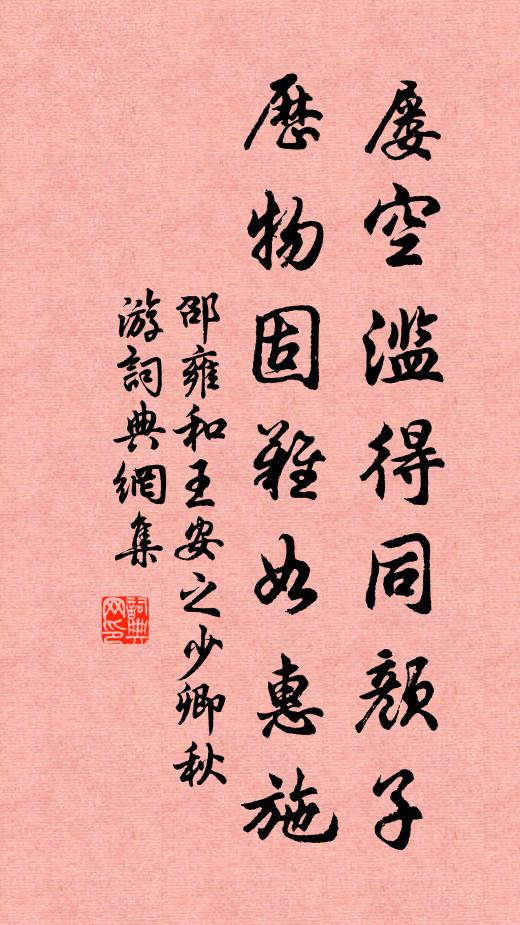 屢空濫得同顏子
歷物固難如惠施
邵雍和王安之少卿秋
游詞典網集
詞典
网印